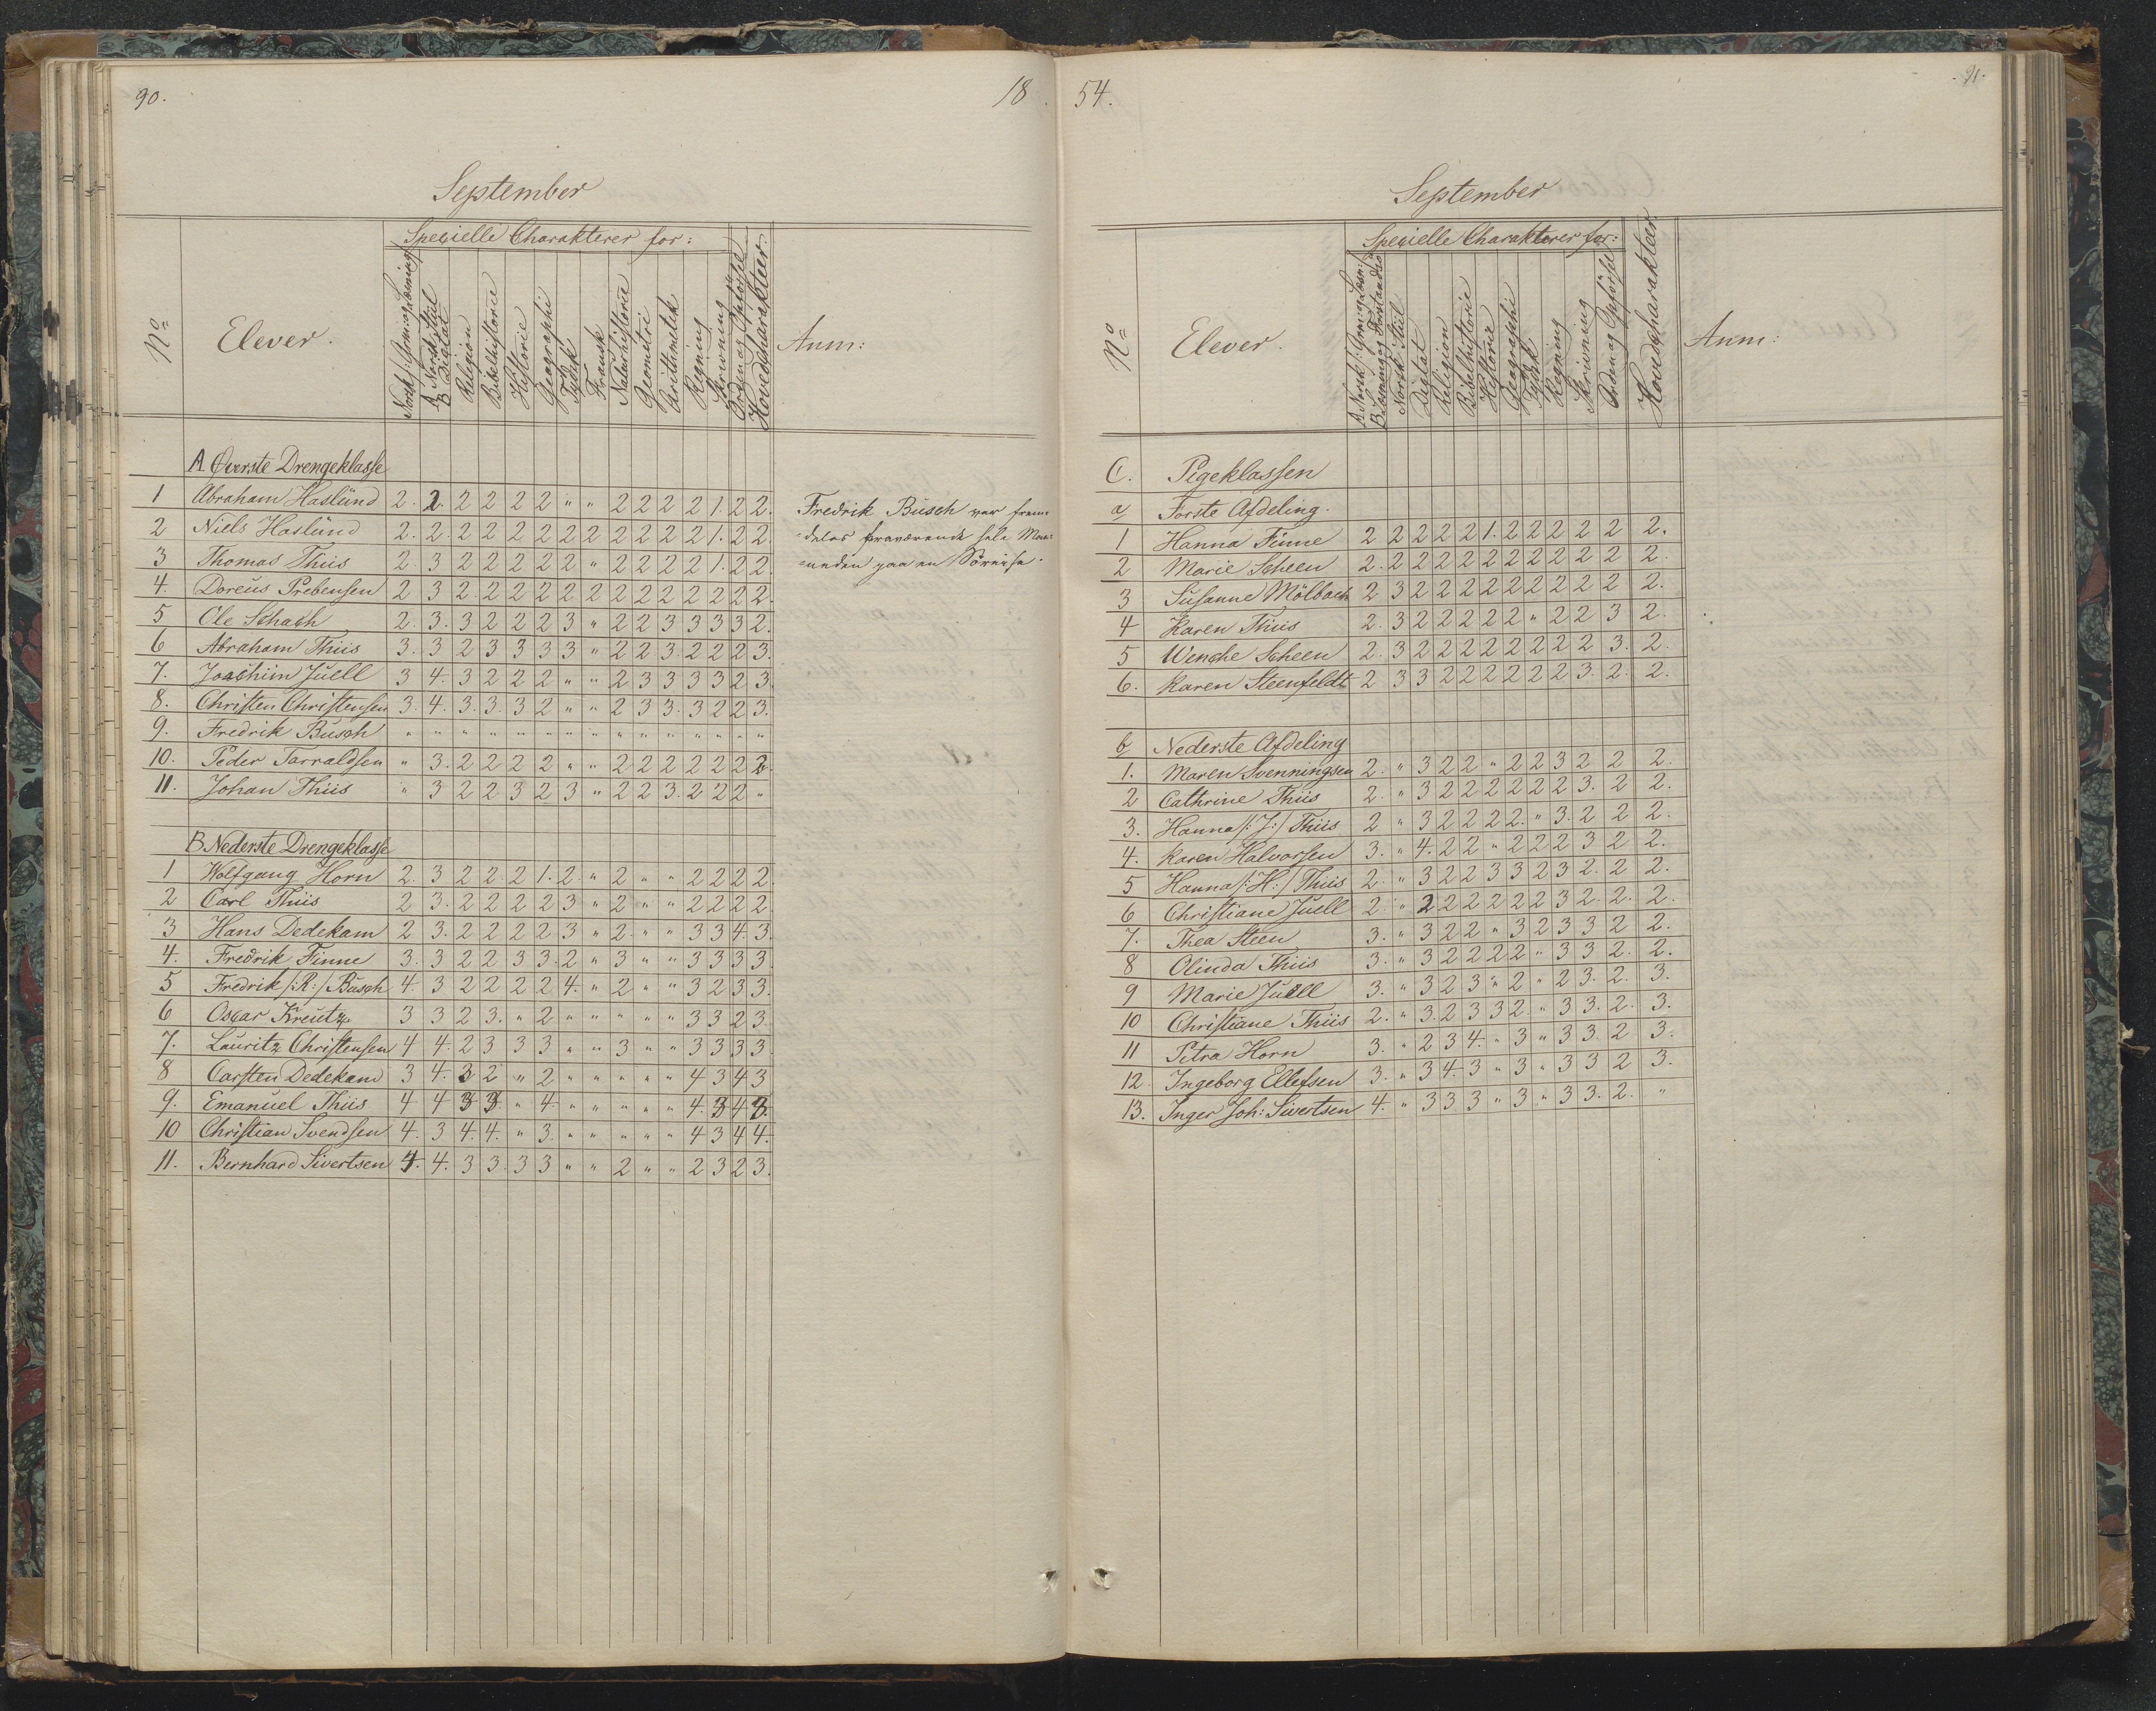 90.
18
September
Specielle Charakterer for:
No
Elever.
Norsk/: Gram: og Læsning
A Norsk Stiil
B Digtat
Religion
Bibelhistorie
Historie
Geographi
Tydsk
Fransk
Naturhistorie
Geometri
Arithmetik
Regning
Skrivning
Orden og Opførsel
Hovedcharakteer.
Anm:
A. Øverste Drengeklasse
1 Abraham Haslund 2. 2. 2 2 2 2 " " 2 2 2 2 1. 2 2.
2 Niels Haslund 2. 2. 2 2 2 2 2 2 2 2 2 2 1. 2 2.
3 Thomas Thiis 2. 3 2 2 2 2 2 " 2 2 2 2 1. 2 2.
4. Doreus Prebensen 2 3 2. 2 2 2 2 2 2 2 2 2 2 2 2.
5 Ole Schach 2. 3. 3 2 2 2 3 " 2 2 3 3 3 3 2.
6 Abraham Thiis 3. 3 2 3 3 3 3 " 2 2 3. 2 2 2 3.
7. Joachim Juell 3 4. 3 2 2 2 " " 2 3 3 3 3 2 3.
8. Christen Christensen 3. 4. 3. 3. 3 2 " " 2 3 3. 3 2 2 3.
9. Fredrik Busch " " " " " " " " " " " " " " "
10. Peder Tarraldsen " 3. 2 2 2 2 " " 2 2 2 2 2 2 2.
11. Johan Thiis " 3 2 2 3 2 3 " 2 2 3. 2 2 2 "
Fredrik Busch var frem-
deles fraværende hele Maa-
neden paa en Söreise.
B. Nederste Drengeklasse
1 Wolfgang Horn 2. 3 2 2 2 1. 2. " 2 " " 2 2 2 2.
2 Carl Thiis 2 3. 2 2 2 2 3 " 2 " " 2 2 2 2.
3 Hans Dedekam 2 3. 2 2 2 2 3 " 2. " " 3 3 4. 3.
4. Fredrik Finne 3. 3 2 2 3 3. 2 " 3 " " 3 3 3 3.
5 Fredrik /:R:/ Busch 4. 3 2 2 2 2 4. " 2 " " 3 2 3 3.
6 Oscar Kreutz 3 3 2 3. " 2 " " " " " 3 3 2 3
7. Lauritz Christensen 4 4. 2 3 3 3 " " 3 " " 3 3 3 3.
8 Carsten Dedekam 3 4. 3 2 " 2 " " " " " 4 3 4 3
9. Emanuel Thiis 4. 4 3 3 " 4. " " " " " 4. 3 4 3.
10 Christian Svendsen 4. 3 4. 4. " 3. " " " " " 4 3 4 4.
11. Bernhard Sivertsen 4. 4. 3 3. 3 3 " " 2 " " 2 3 2 3.
54.
91.
September
Specielle Charakterer for:
No
Elever.
A. Norsk/: Gram: og Læsn:/
B. Læsning og Forstandsö
Norsk Stiil
Digtat
Religion
Bibelhistorie
Historie
Geographi
Tydsk
Regning
Skrivning
Orden og Opførsel
Hovedcharakteer.
Anm:
C. Pigeklassen
a Første Afdeling.
1 Hanna Finne 2 2 2 2 2 1. 2 2 2 2 2 2 2.
2 Marie Scheen 2. 2 2 2 2 2 2 2 2 2 2 2 2.
3 Susanne Mölbach 2 3 2 2 2 2 2 2 2 2 2 2 2.
4 Karen Thiis 2. 3 2 2 2 2 2 2 " 2 2 3 2.
5 Wenche Scheen 2. 3 2 2 2 2 2 2 2 2 2 3. 2.
6. Karen Steenfeldt 2 3 3 2 2 2 2 2 2 2 3. 2. 2.
b Nederste Afdeling
1. Maren Svenningsen 2. " 3 2 2 " 2 2 3 2 2 2.
2 Cathrine Thiis 2. " 3 2 2 2 2 2 2 3. 2 2.
3. Hanna /:J:/ Thiis 2 " 3 2 2 2 2. " 3. 2 2 2.
4. Karen Halvorsen 3. " 4. 2 2 " 2 2 2 3 2 2.
5 Hanna /:H:/ Thiis 2. " 3 2 2 3 3 2 3 2. 2 2.
6 Christiane Juell 2. " 2 2 2 2 2 2 3 2. 2. 2.
7. Thea Steen 3. " 3 2 2 " 3 2 3 3 2 2.
8 Olinda Thiis 3. " 3 2 2 2 2 " 3 3 2. 2.
9 Marie Juell 3. " 3 2 3 " 2 " 2 3. 2. 3.
10 Christiane Thiis 2. " 3. 2 3 3 2. " 3 3. 2. 3.
11 Petra Horn 3. " 2 3 4. " 3 " 3 3. 2 3.
12. Ingeborg Ellefsen 3. " 3 4. 3 " 3 " 3 3 2 3.
13. Inger Joh: Sivertsen 4. " 3 3 3 " 3 " 3 3. 2. "